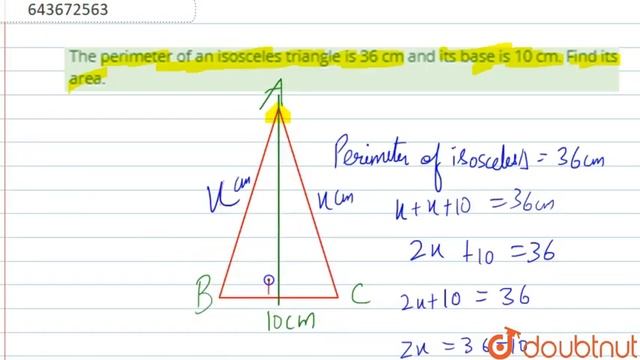 643672563
The perimeter of an isosceles triangle is 36 cm and its base is 10 cm. Find its
area.
A
Perimeter of isosceles Δ = 36cm
x cm
x cm
x + x + 10 = 36cm
2x + 10 = 36
B
C
10cm
2x + 10 = 36
2x = 36 - 10
doubtnut